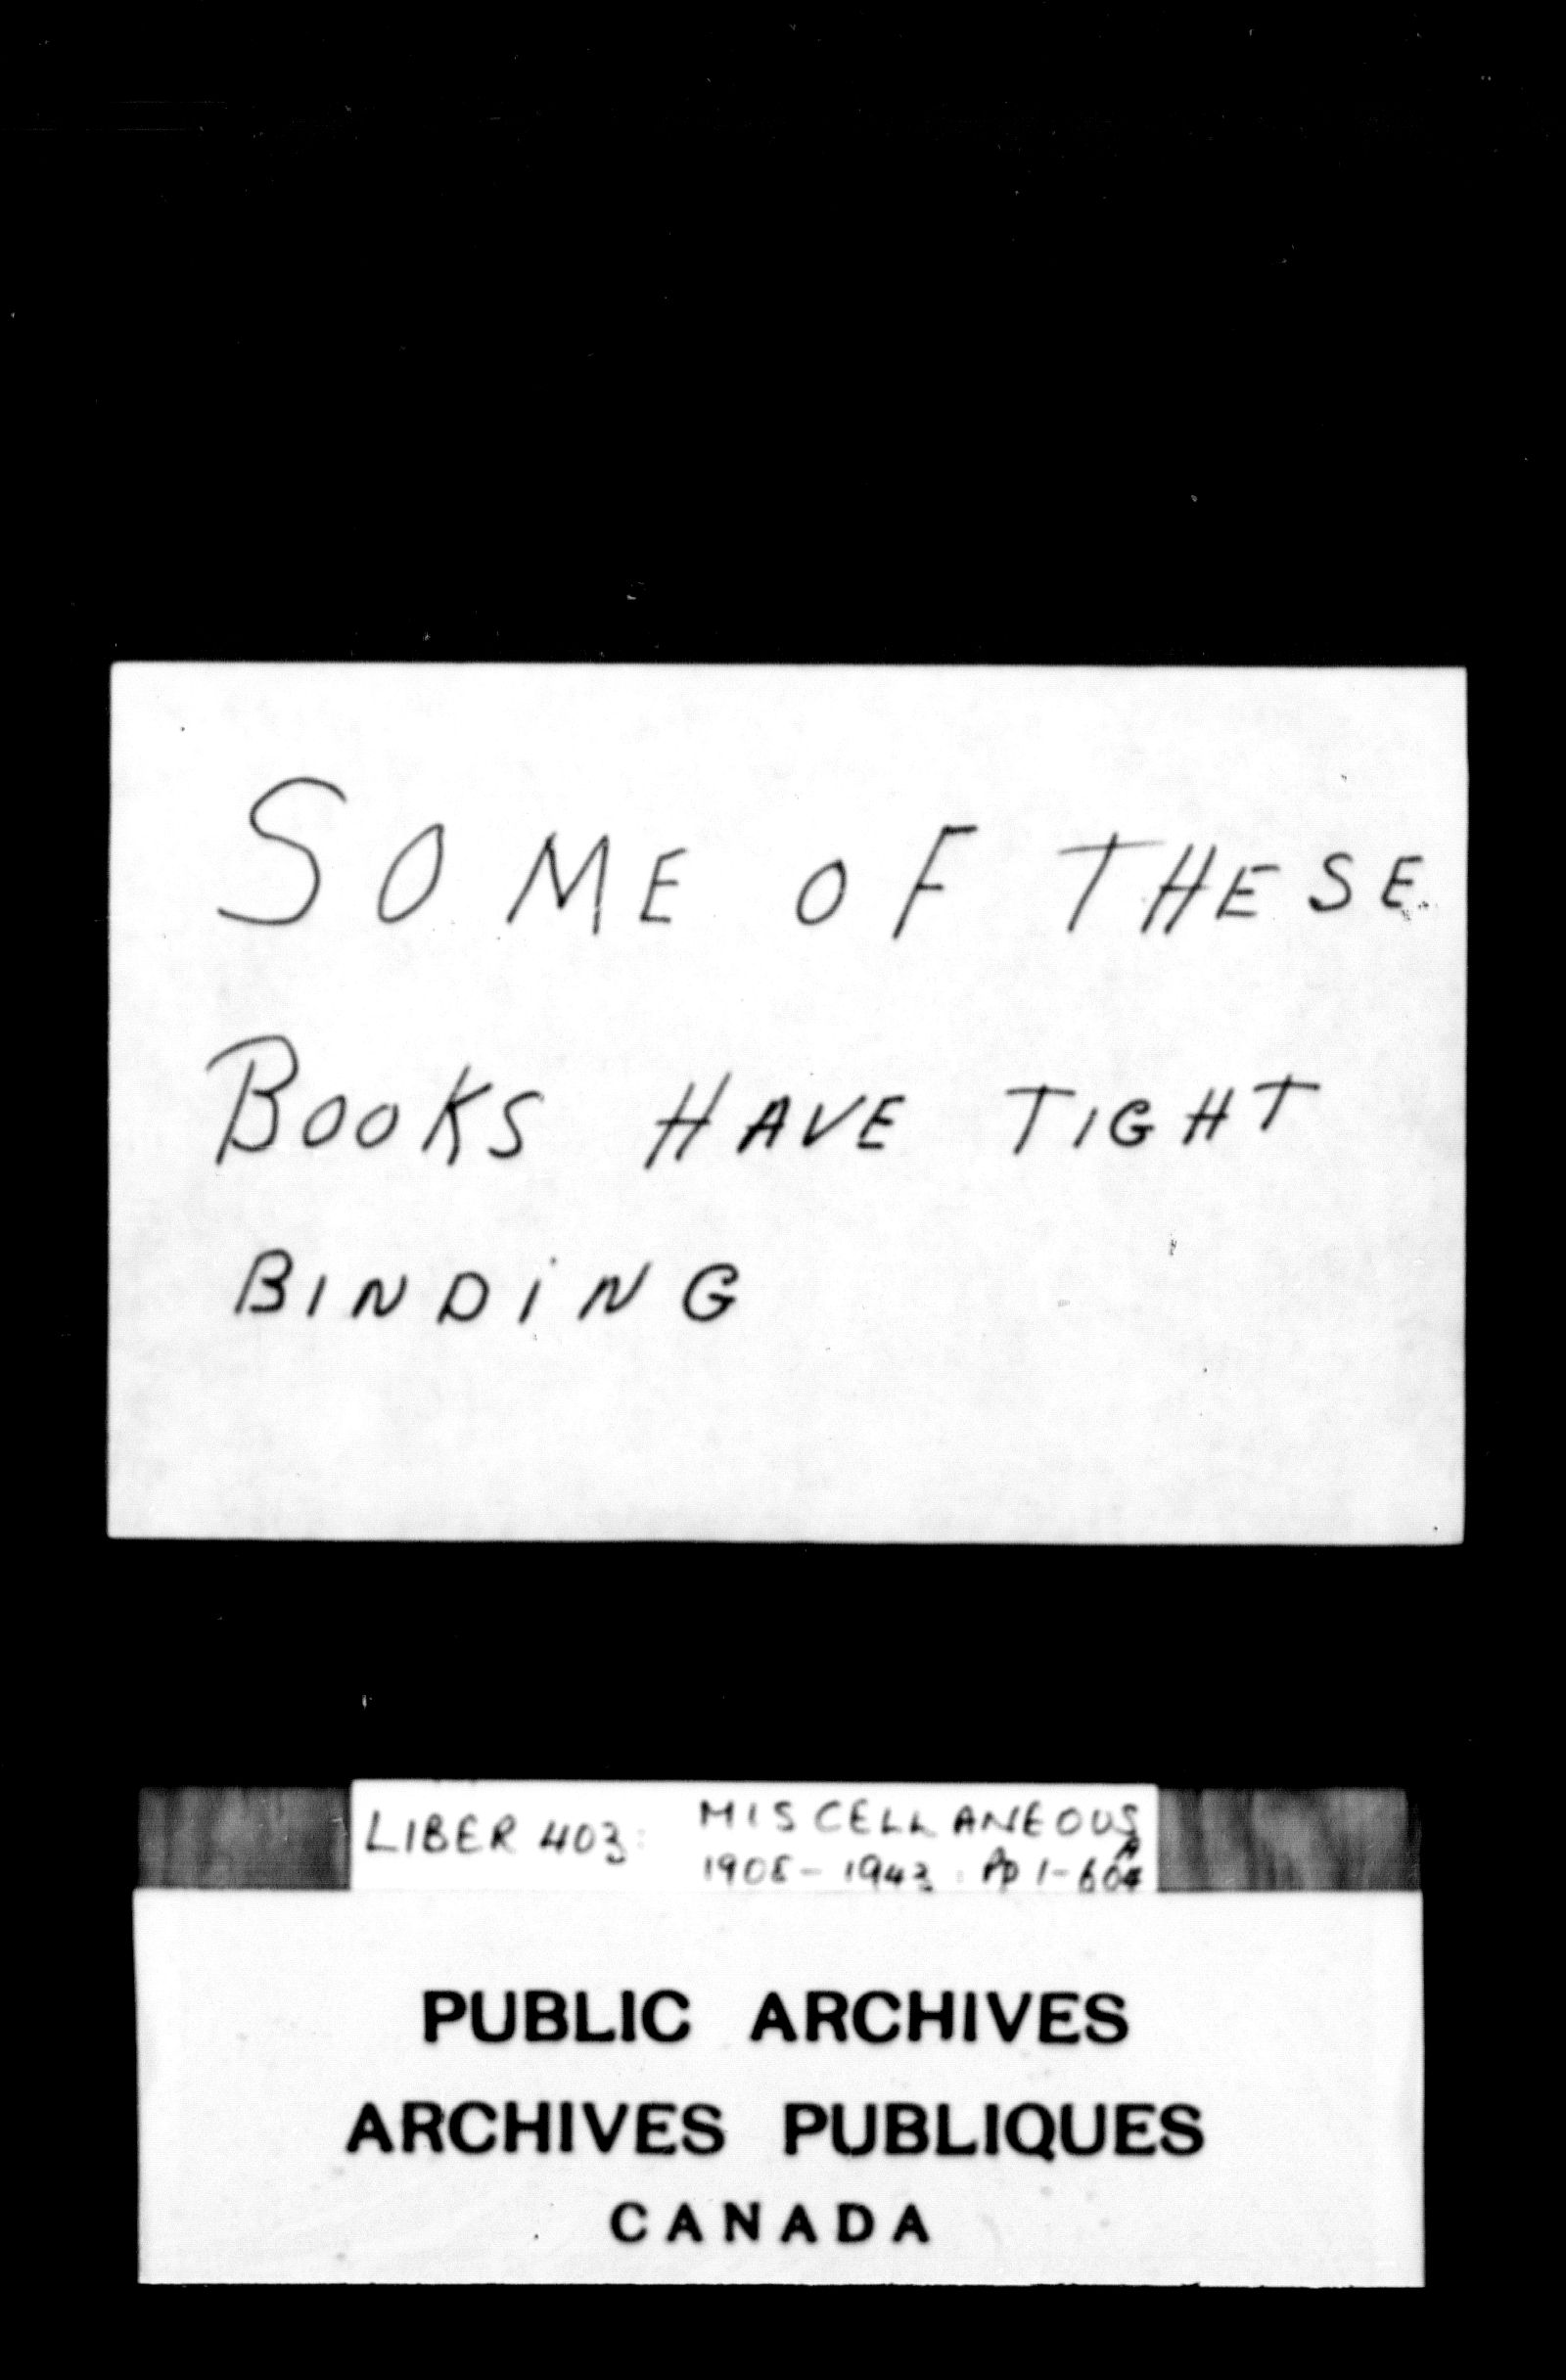 SOME OF THESE
BOOKS HAVE TIGHT
BINDING
LIBER 403: MISCELLANEOUS
1908-1943: pp 1-604
PUBLIC ARCHIVES
ARCHIVES PUBLIQUES
CANADA